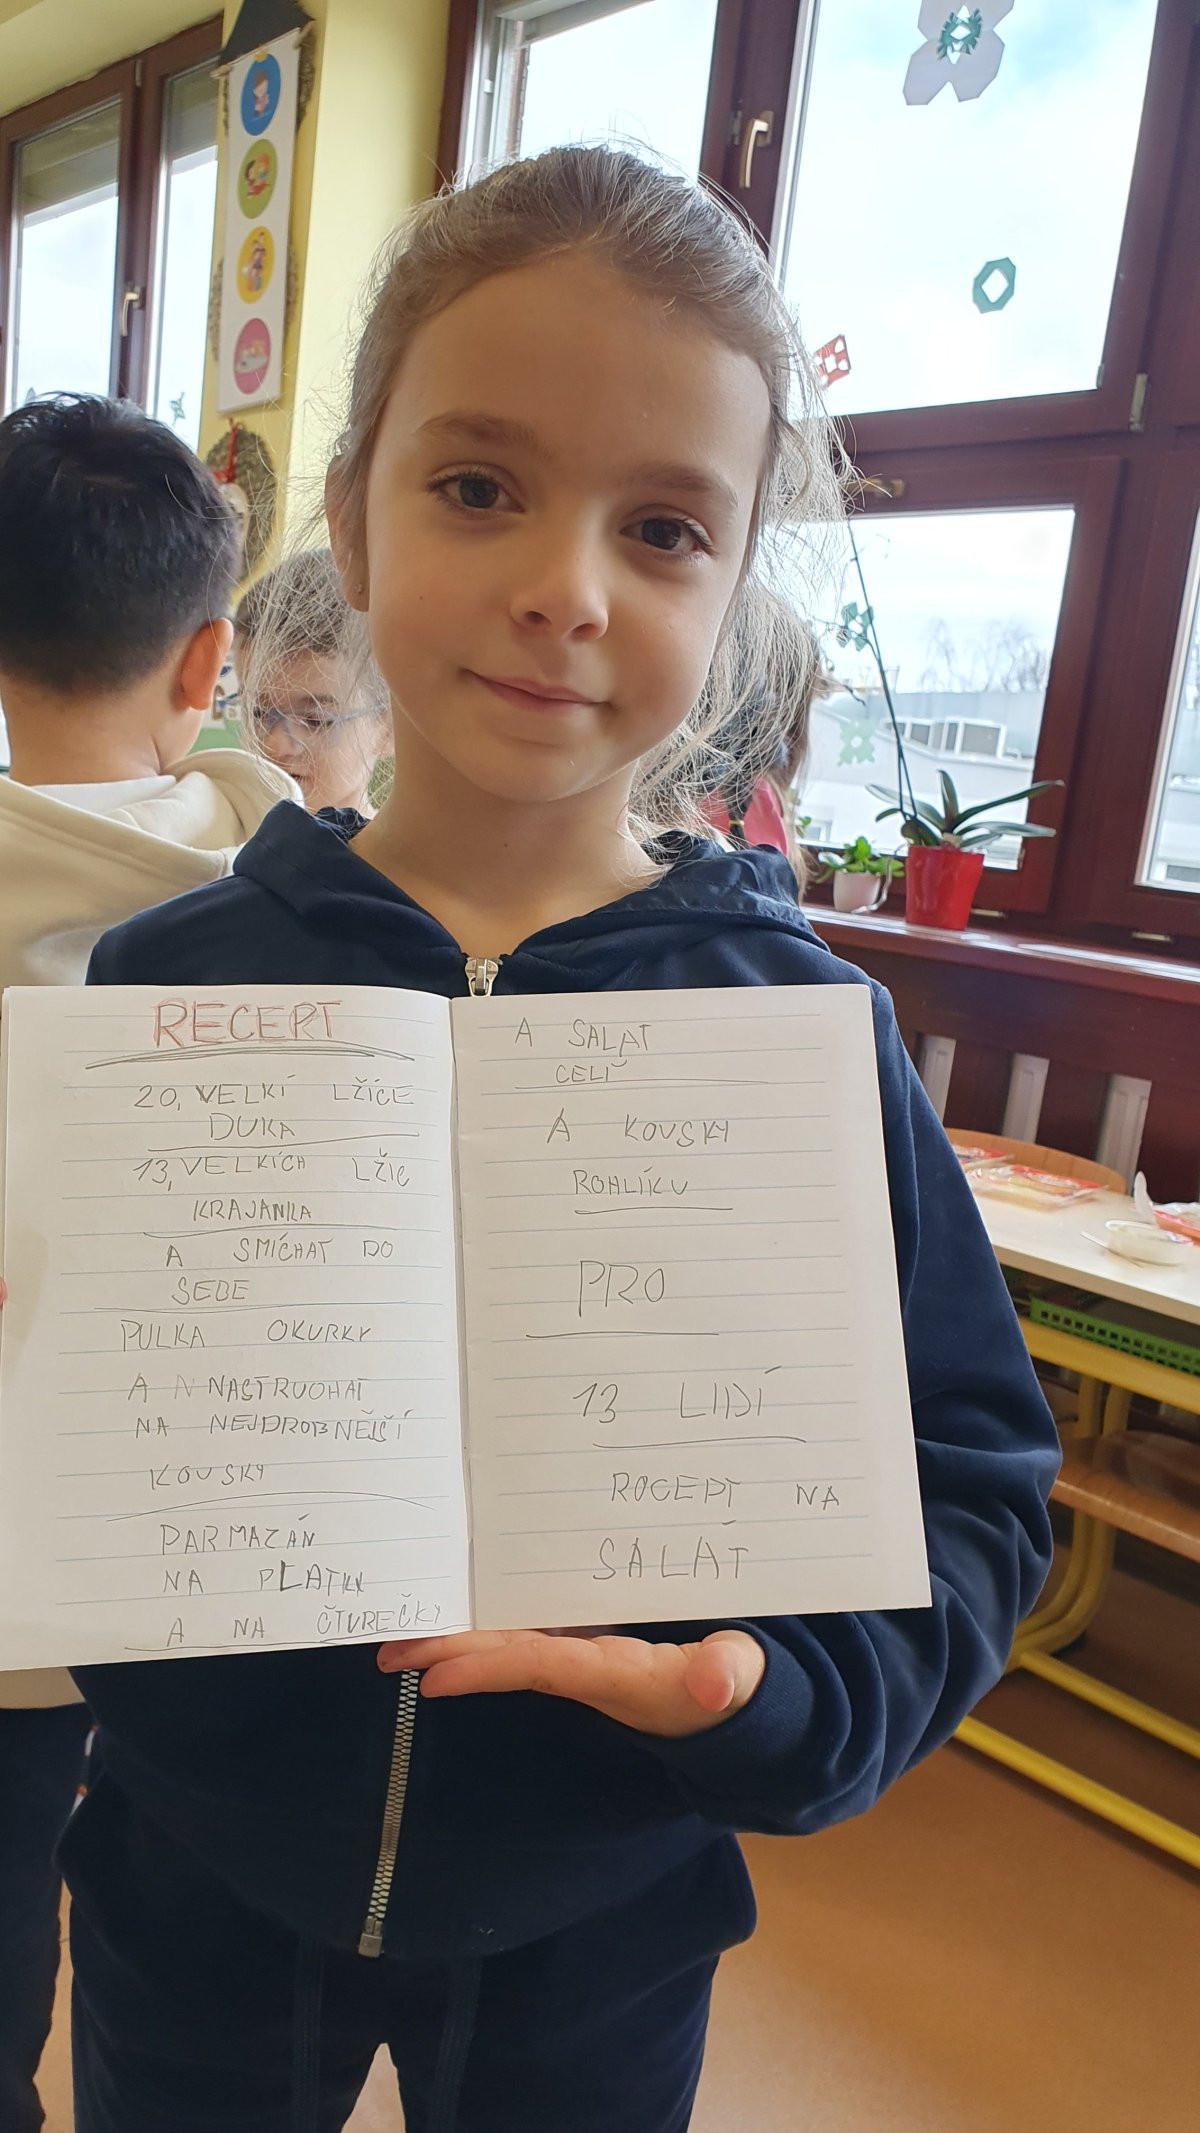 RECEPT
20, VELKÍ LŽÍCE
DUKA
13, VELKÍCH LŽIC
KRAJANKA
A SMÍCHAT DO
SEBE
PULKA OKURKY
A N NASTRUOHAT
NA NEJDROBNĚJŠÍ
KOUSKY
PARMAZÁN
NA PLATKY
A NA ČTVREČKY
A SALAT
CELÍ
A KOUSKY
ROHLÍKU
PRO
13 LIDÍ
ROCEPT NA
SALÁT